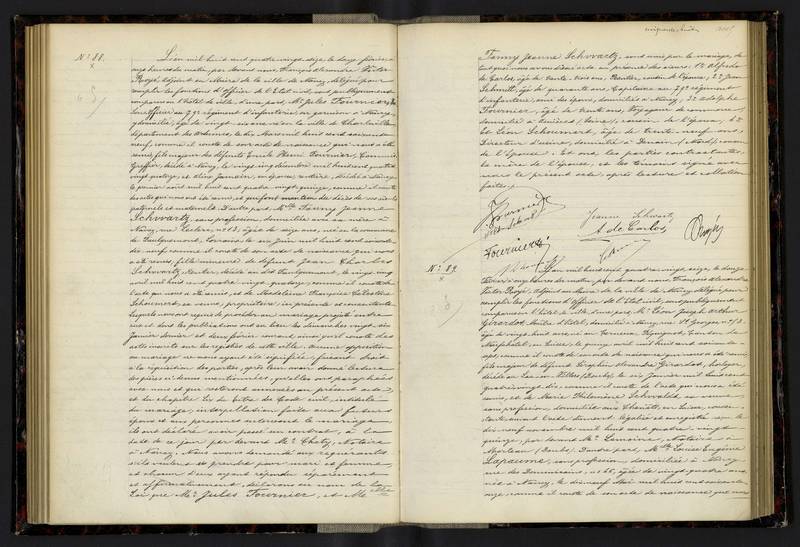 N° 88.
L'an mil huit cent quatre vingt seize, le douze février à
onze heures du matin, par devant nous, François Alexandre Victor
adjoint au Maire de la ville de Nancy, délégué pour
remplir les fonctions d'Officier de l'Etat civil, sont publiquement
comparus en l'hôtel de ville, d'une part, Mr Jules Fournier,
Sous-officier au 79e régiment d'infanterie, en garnison à Nancy,
domicilié, âgé de vingt six ans, né en la ville de Charleville,
département des Ardennes, le dix Mars mil huit cent soixante
neuf, comme il conste de son acte de naissance qui nous a été
remis, fils majeur des défunts Emile Henri Fournier, Commis
Greffier, décédé à Nancy, le vingt cinq décembre mil huit cent quatre
vingt quatorze, et Elisa Jamsein, sa épouse, rentière, décédée à Nancy,
le premier août mil huit cent quatre vingt quinze, comme il conste
paternels et maternels. D'autre part, Mlle Fanny Jeanne
Schwartz, sans profession, domiciliée avec sa mère à
Nancy, rue Leclerc, n° 13, âgée de seize ans, née en la commune
de Faulquemont, Lorraine, le six Juin mil huit cent soixante
dix neuf, comme il conste de son acte de naissance qui nous
a été remis, fille mineure de défunt Jean Charles
Schwartz, Rentier, décédé au dit Faulquemont, le vingt cinq
avril mil huit cent quatre vingt quatorze, comme il conste de
l'acte qui nous a été remis, et de Madeleine Françoise Célestine
Schoumert, sa veuve, propriétaire, ici présente et consentante
lesquels nous ont requis de procéder au mariage projeté entre
eux et dont les publications ont eu lieu les dimanches vingt six
Janvier dernier et deux février courant, ainsi qu'il conste des
actes inscrits sur les registres de cette ville. Aucune opposition
au mariage ne nous ayant été signifiée, faisant droit
à la réquisition des parties, après leur avoir donné lecture
des pièces ci-dessus mentionnées, qu'elles ont paraphées
avec nous et qui resteront annexées au présent acte,
et du chapitre six du titre du Code civil, intitulé
du mariage, interpellation faite aux futurs
époux et aux personnes autorisant le mariage
ils ont déclaré avoir passé un contrat, à la
date de ce jour par devant Me Chaty, Notaire
à Nancy. Nous avons demandé aux requérants
s'ils veulent se prendre pour mari et femme,
et chacun d'eux ayant répondu séparément
et affirmativement, déclarons au nom de la
Loi que Mr Jules Fournier, et Mlle
Fanny Jeanne Schwartz, sont unis par le mariage, de
tout quoi nous avons dressé acte en présence des sieurs: 1° Alfredo
de Carlos, âgé de trente trois ans, Rentier, cousin de l'épouse, 2° Jean
Schmitt, âgé de quarante ans, Capitaine au 79e régiment
d'infanterie, ami des époux, domiciliés à Nancy, 3° Adolphe
Fournier, âgé de trente ans, Voyageur de commerce,
domicilié à cousin de l'époux, 4°
et Léon Schoumert, âgé de trente neuf ans,
Directeur d'usine, domicilié à Denain (Nord), cousin
de l'épouse. Et ont, les parties contractantes,
la mère de l'épouse, et les témoins signé avec
nous le présent acte, après lecture et collation
faites.
J Fournier
Jeanne Schwartz
A de Carlos
Fournier
N° 89.
L'an mil huit cent quatre vingt seize, le douze
février à onze heures du matin, par devant nous, François Alexandre
Victor adjoint au Maire de la ville de Nancy, délégué pour
remplir les fonctions d'Officier de l'Etat civil, sont publiquement
comparus en l'hôtel de ville, d'une part, Mr Léon Joseph Arthur
Girardot, Maître d'hôtel, domicilié à Nancy, rue St Georges, n°
âgé de vingt huit ans, né au canton de
Neufchâtel, en Suisse, le quinze avril mil huit cent soixante
sept, comme il conste de son acte de naissance qui nous a été remis,
fils majeur de défunt Alexandre Girardot, horloger,
décédé au Villers (Doubs), le six Janvier mil huit cent
quatre vingt dix, comme il conste de l'acte qui nous a été
remis, et de Marie Philomène Schwald, sa veuve
sans profession, domiciliée en Suisse,
dix neuf novembre mil huit cent quatre vingt
quinze, par devant Me Lemoine, Notaire à
Morteau (Doubs). D'autre part, Mlle Louise Eugénie
Lapaume, sans profession, domiciliée à Nancy
rue des Dominicains, n° 46, âgée de vingt quatre ans,
née à Nancy, le dix neuf Mai mil huit cent soixante
onze, comme il conste de son acte de naissance, que nous